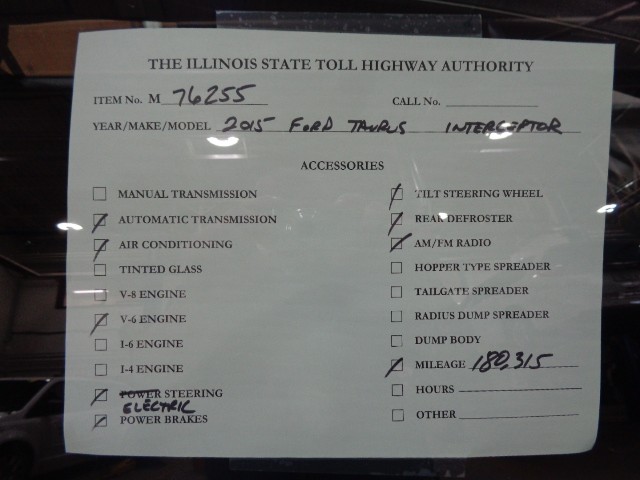 THE ILLINOIS STATE TOLL HIGHWAY AUTHORITY
ITEM No. M 76255 CALL No.
YEAR/MAKE/MODEL 2015 FORD TAURUS INTERCEPTOR
ACCESSORIES
MANUAL TRANSMISSION
AUTOMATIC TRANSMISSION
AIR CONDITIONING
TINTED GLASS
V-8 ENGINE
V-6 ENGINE
I-6 ENGINE
I-4 ENGINE
POWER STEERING
ELECTRIC
POWER BRAKES
TILT STEERING WHEEL
REAR DEFROSTER
AM/FM RADIO
HOPPER TYPE SPREADER
TAILGATE SPREADER
RADIUS DUMP SPREADER
DUMP BODY
MILEAGE 180,315
HOURS
OTHER